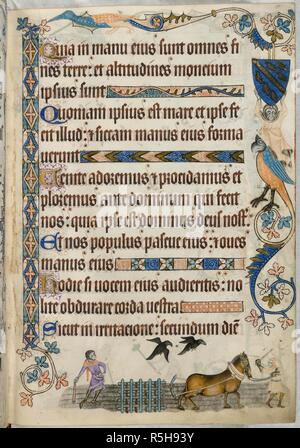 Quia in manu eius sunt omnes fi
nes terre: et altitudines moncium
ipsius sunt
Quoniam ipsius est mare et ipse fe
cit illud: et siccam manus eius forma
uerunt
Uenite adoremus et procidamus et
ploremus ante dominum qui fecit
nos: quia ipse est dominus deus nost
Et nos populus pascue eius: et oues
manus eius
Hodie si uocem eius audieritis: no
lite obdurare corda uestra
Sicut in irritacione: secundum diem
alamy
R5H93Y